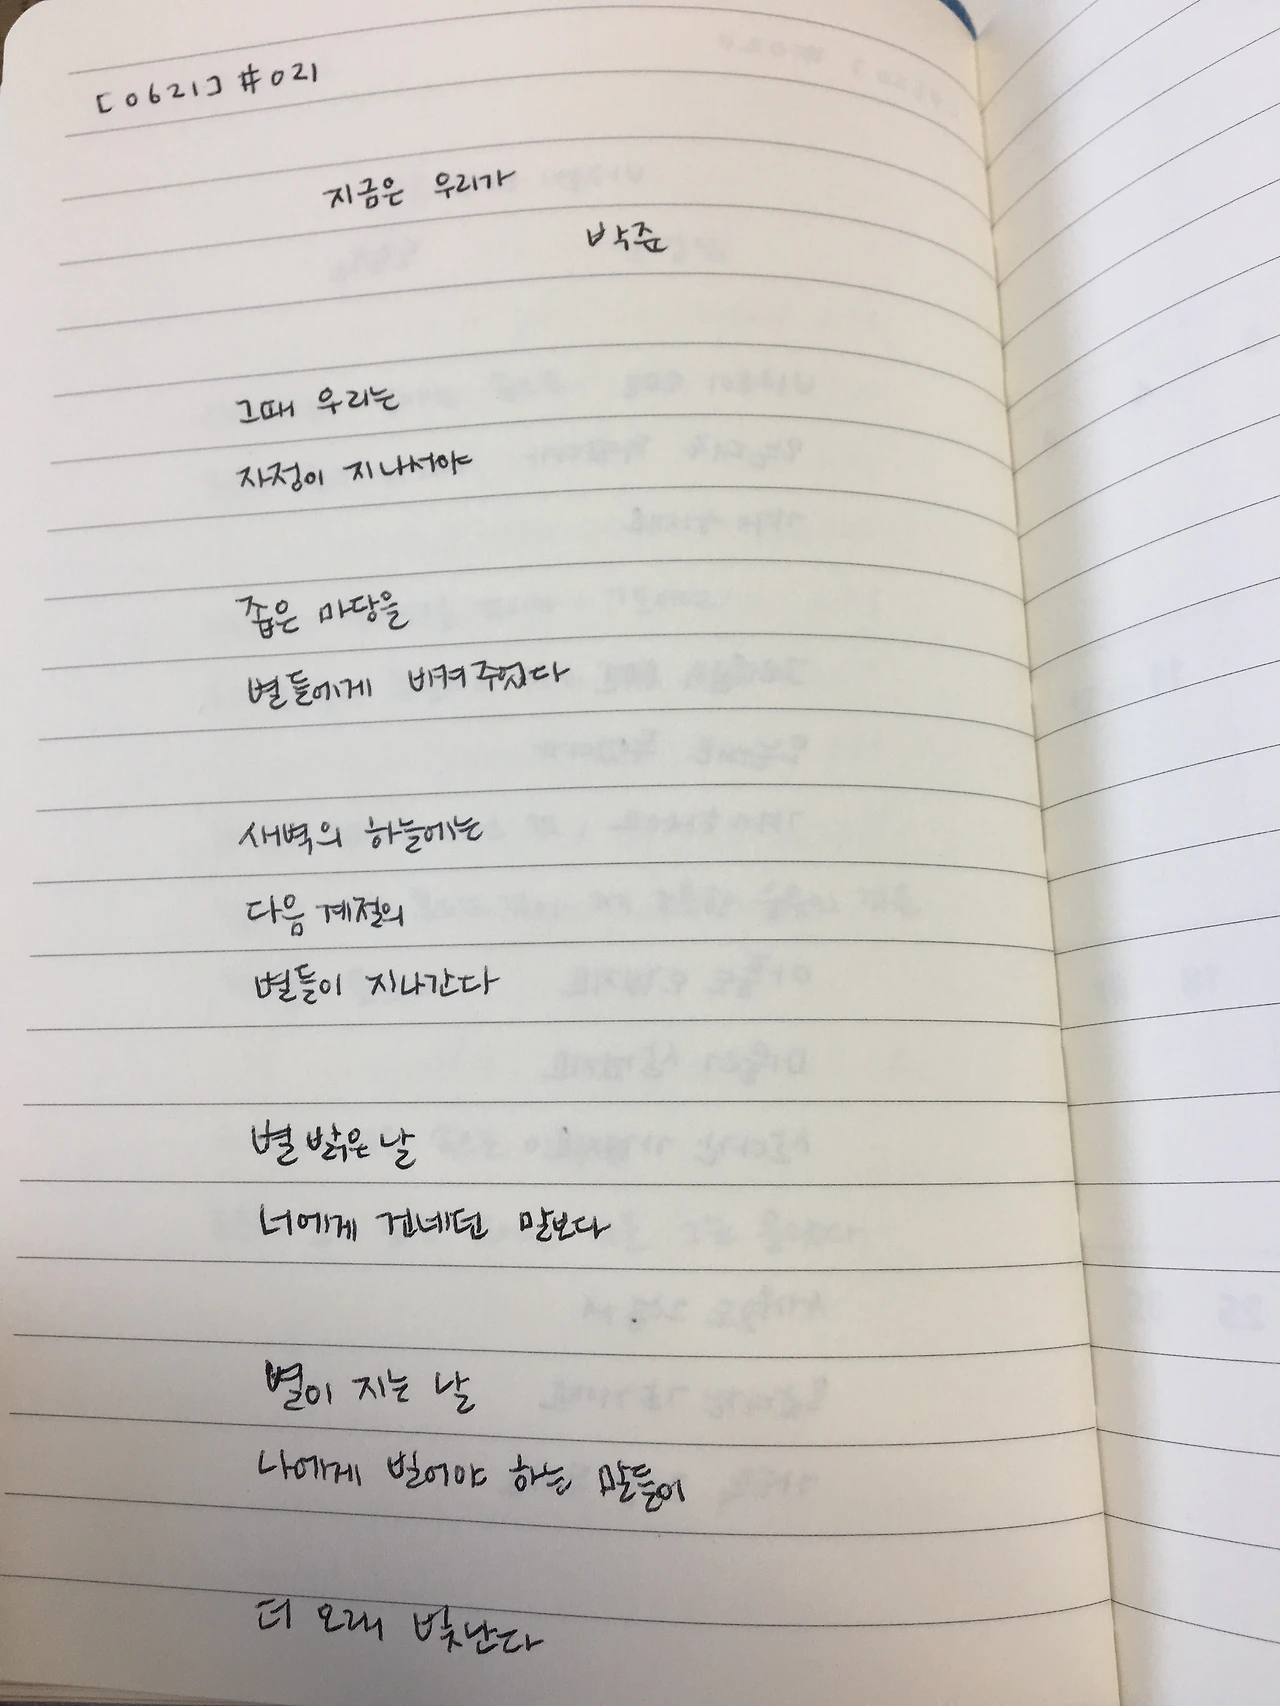 [0621] #021
지금은 우리가
박준
그때 우리는
자정이 지나서야
좁은 마당을
별들에게 비켜주었다
새벽의 하늘에는
다음 계절의
별들이 지나간다
별 밝은 날
너에게 건네던 말보다
별이 지는 날
나에게 빌어야 하는 말들이
더 오래 빛난다